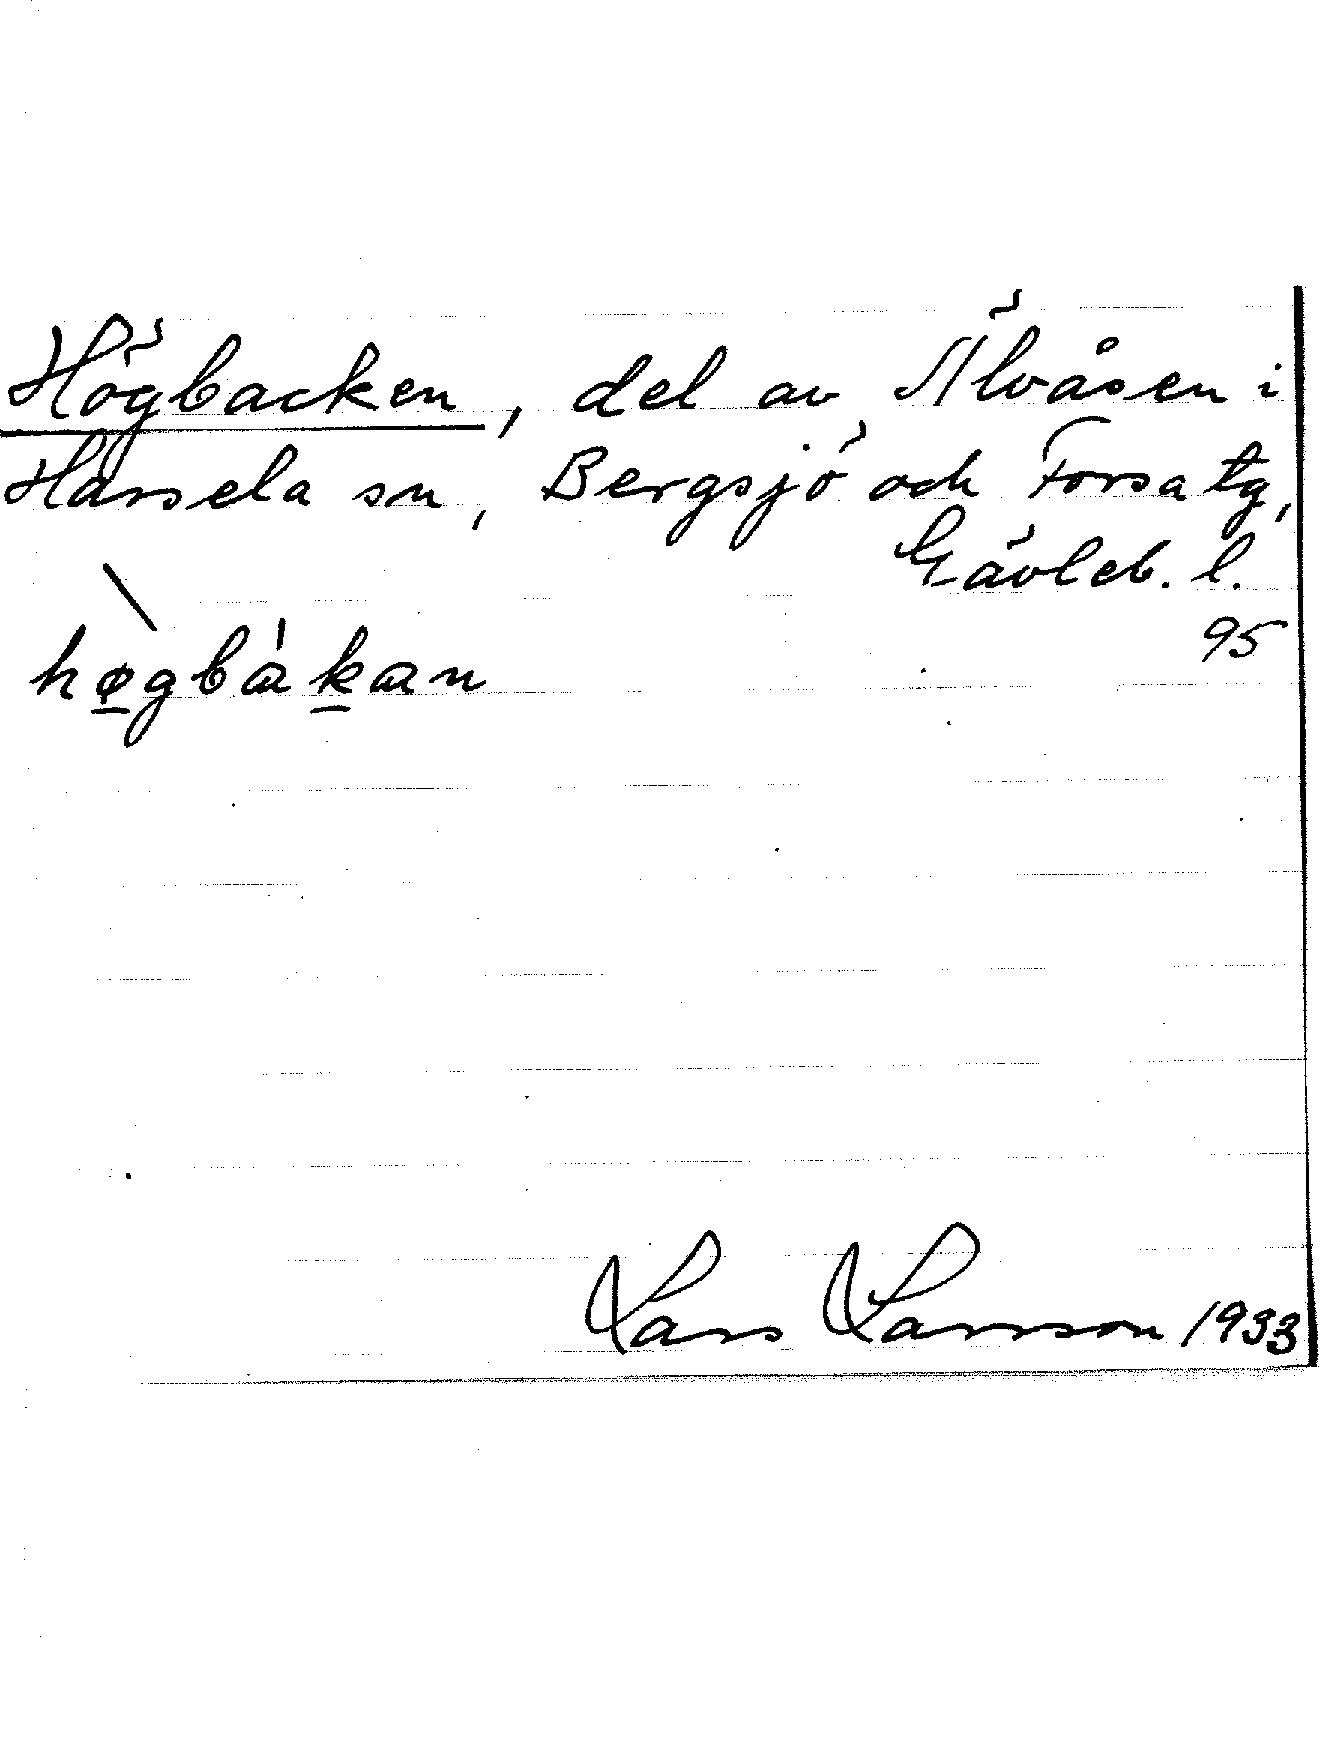 Högbacken, del av Älvåsen i
Hassela sn, Bergsjö och Forsa tg,
Gävleb. l.
95
hø̲gbàk̲an
Lars Larsson 1933